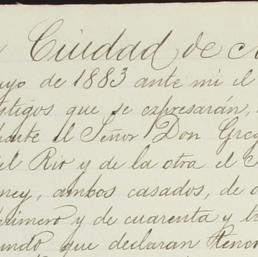 Ciudad de
yo de 1883 ante mi el
stigos que se expresarán,
ante el Señor Don Greg
del Rio y de la otra el
ney, ambos casados, de
primero y de cuarenta y t
undo que declaran tenor